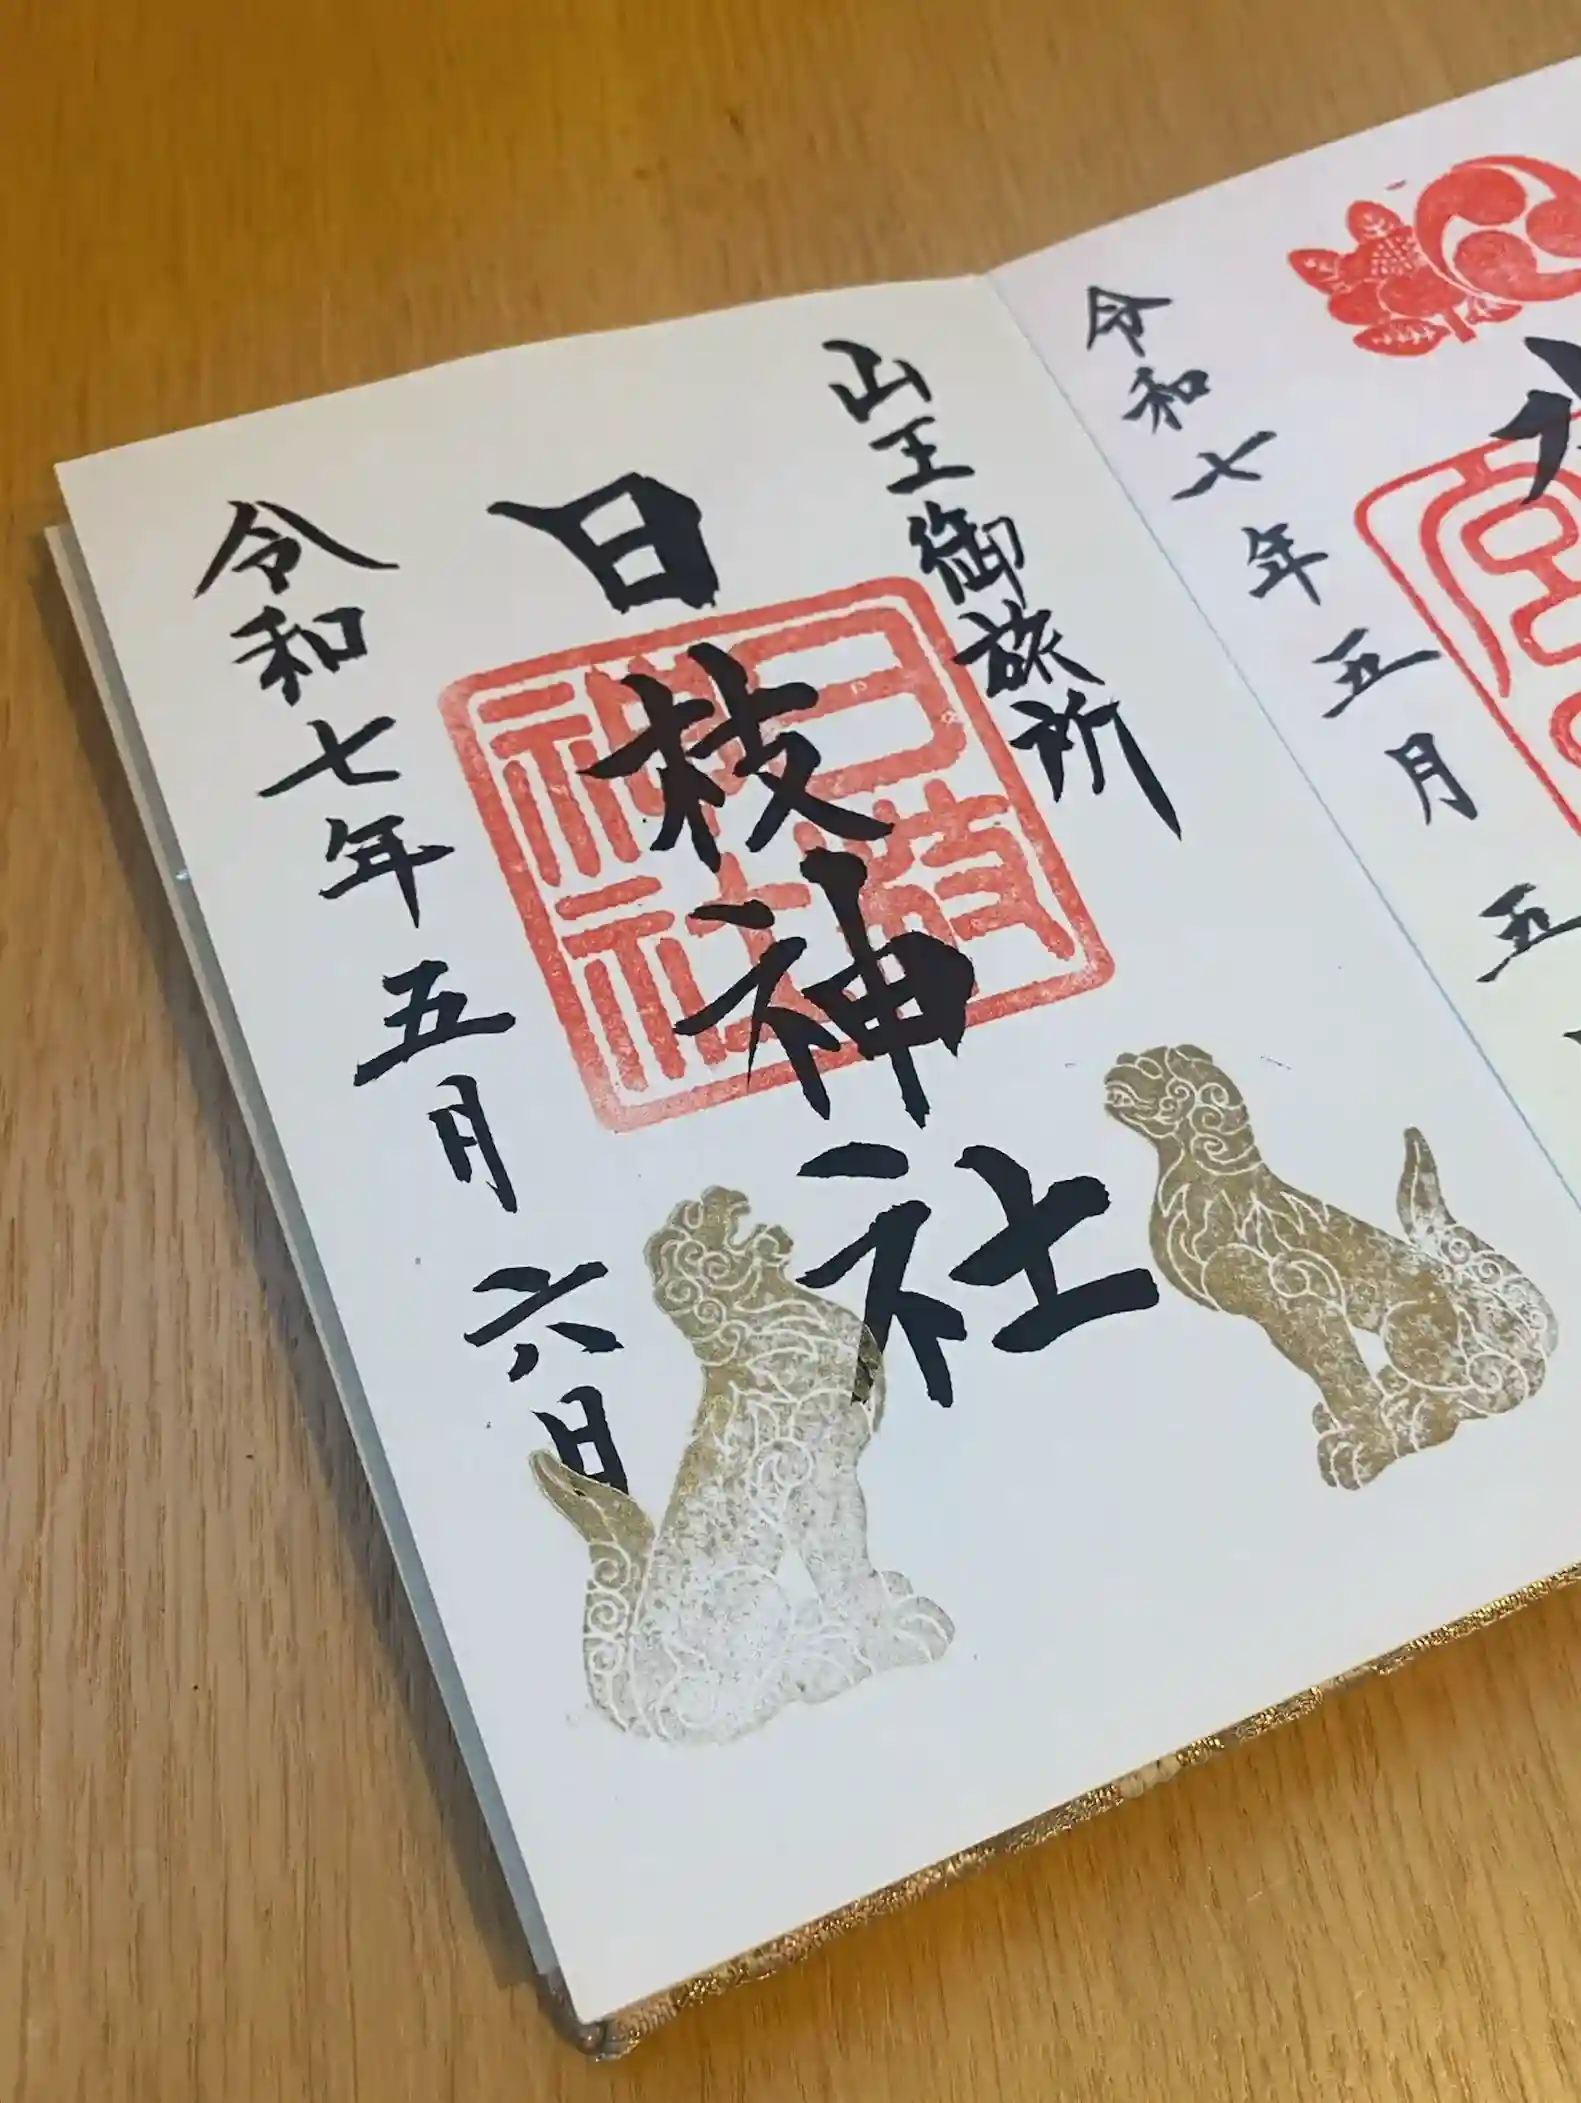 令和七年五月五
山王御旅所
日枝神社
日枝神社
令和七年五月六日